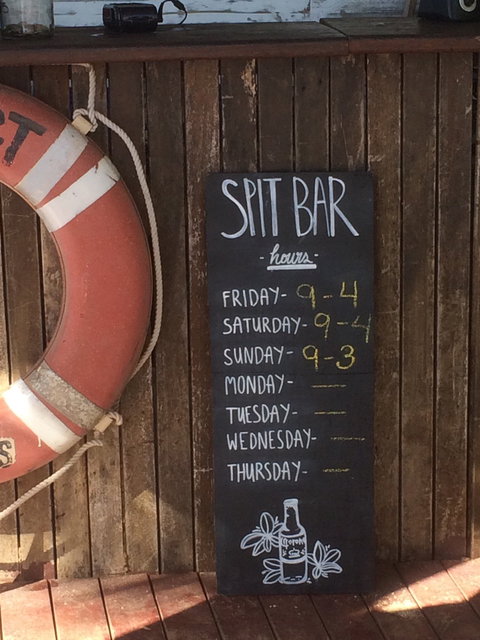 SPIT BAR
- hours -
FRIDAY- 9 - 4
SATURDAY- 9 - 4
SUNDAY- 9 - 3
MONDAY- —
TUESDAY- —
WEDNESDAY- —
THURSDAY- —
Corona
CT
S